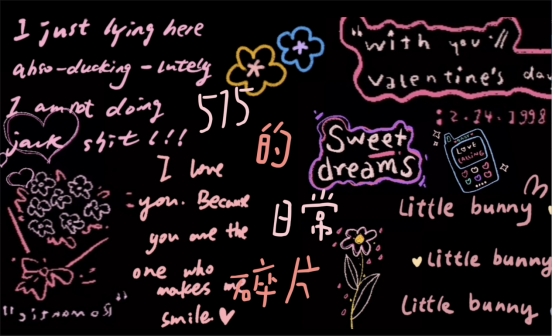 I just lying here
abso-ducking-lutely
I am not doing
jack shit!!!
575
的
日常
碎片
I love
you. Because
you are the
one who
makes me
smile
"romantic"
Sweet
dreams
"with you"
Valentine's day
:2.14.1998
LOVE
CALLING
Little bunny
Little bunny
Little bunny